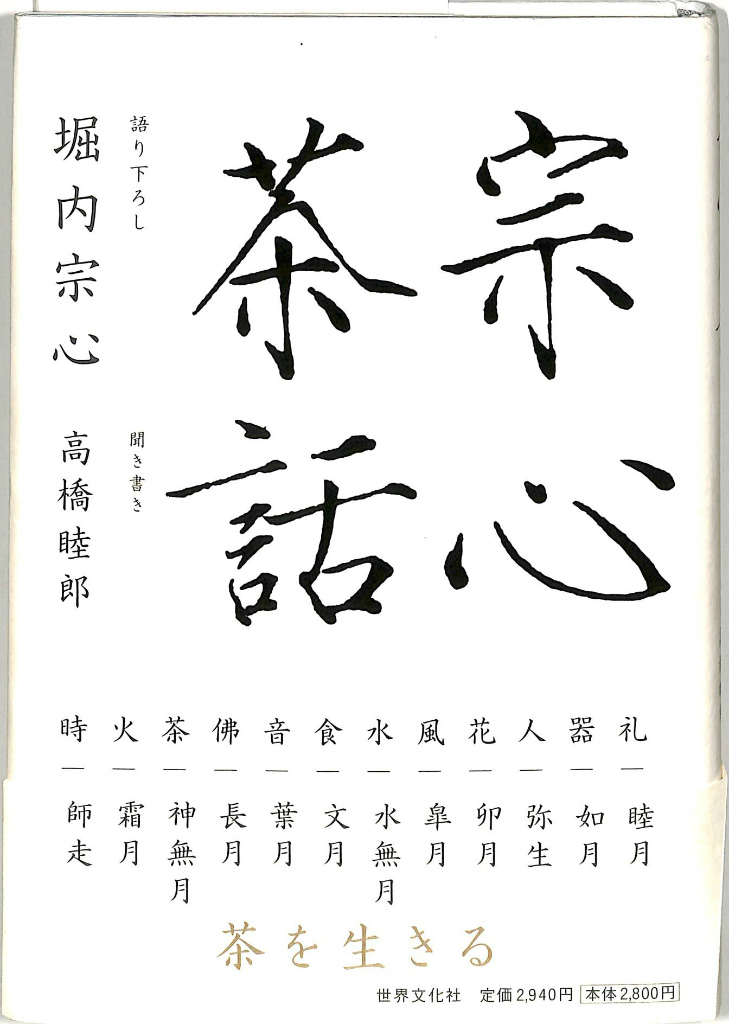 宗心
茶話
語り下ろし
堀内宗心
聞き書き
高橋睦郎
礼―睦月
器―如月
人―弥生
花―卯月
風―皐月
水―水無月
食―文月
音―葉月
佛―長月
茶―神無月
火―霜月
時―師走
茶を生きる
世界文化社 定価2,940円 本体2,800円